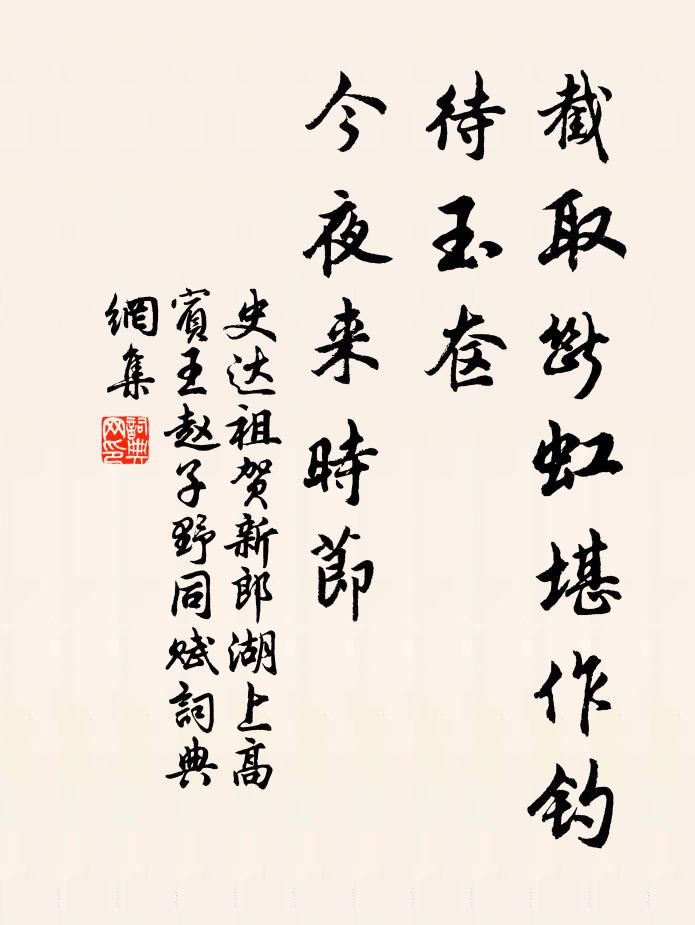 截取斷虹堪作釣
待玉奁
今夜来時節
史达祖贺新郎湖上高
賓王赵子野同赋詞典
網集
詞典
网印